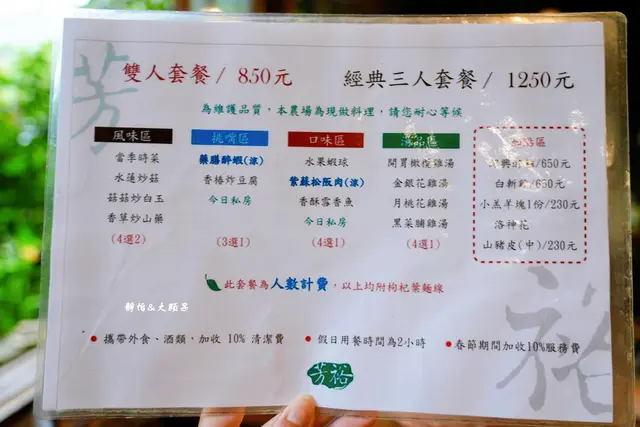 芳
雙人套餐 / 850元 經典三人套餐 / 1250元
為維護品質，本農場為現做料理，請您耐心等候
風味區 挑嘴區 口味區 湯品區
當季時菜 藥膳醉蝦(涼) 水果蝦球 開胃橄欖雞湯 /650元
水蓮炒菇 香椿炸豆腐 紫蘇松阪肉(涼) 金銀花雞湯 白斬雞/650元
菇菇炒白玉 今日私房 香酥雪香魚 月桃花雞湯 小羔羊塊1份/230元
香草炒山藥 今日私房 黑菜脯雞湯 洛神花
(4選2) (3選1) (4選1) (4選1) 山豬皮(中)/230元
此套餐為人數計費，以上均附枸杞葉麵線
靜怡&大顆呆
● 攜帶外食、酒類，加收 10% 清潔費 ● 假日用餐時間為2小時 ● 春節期間加收10%服務費
芳裕
裕